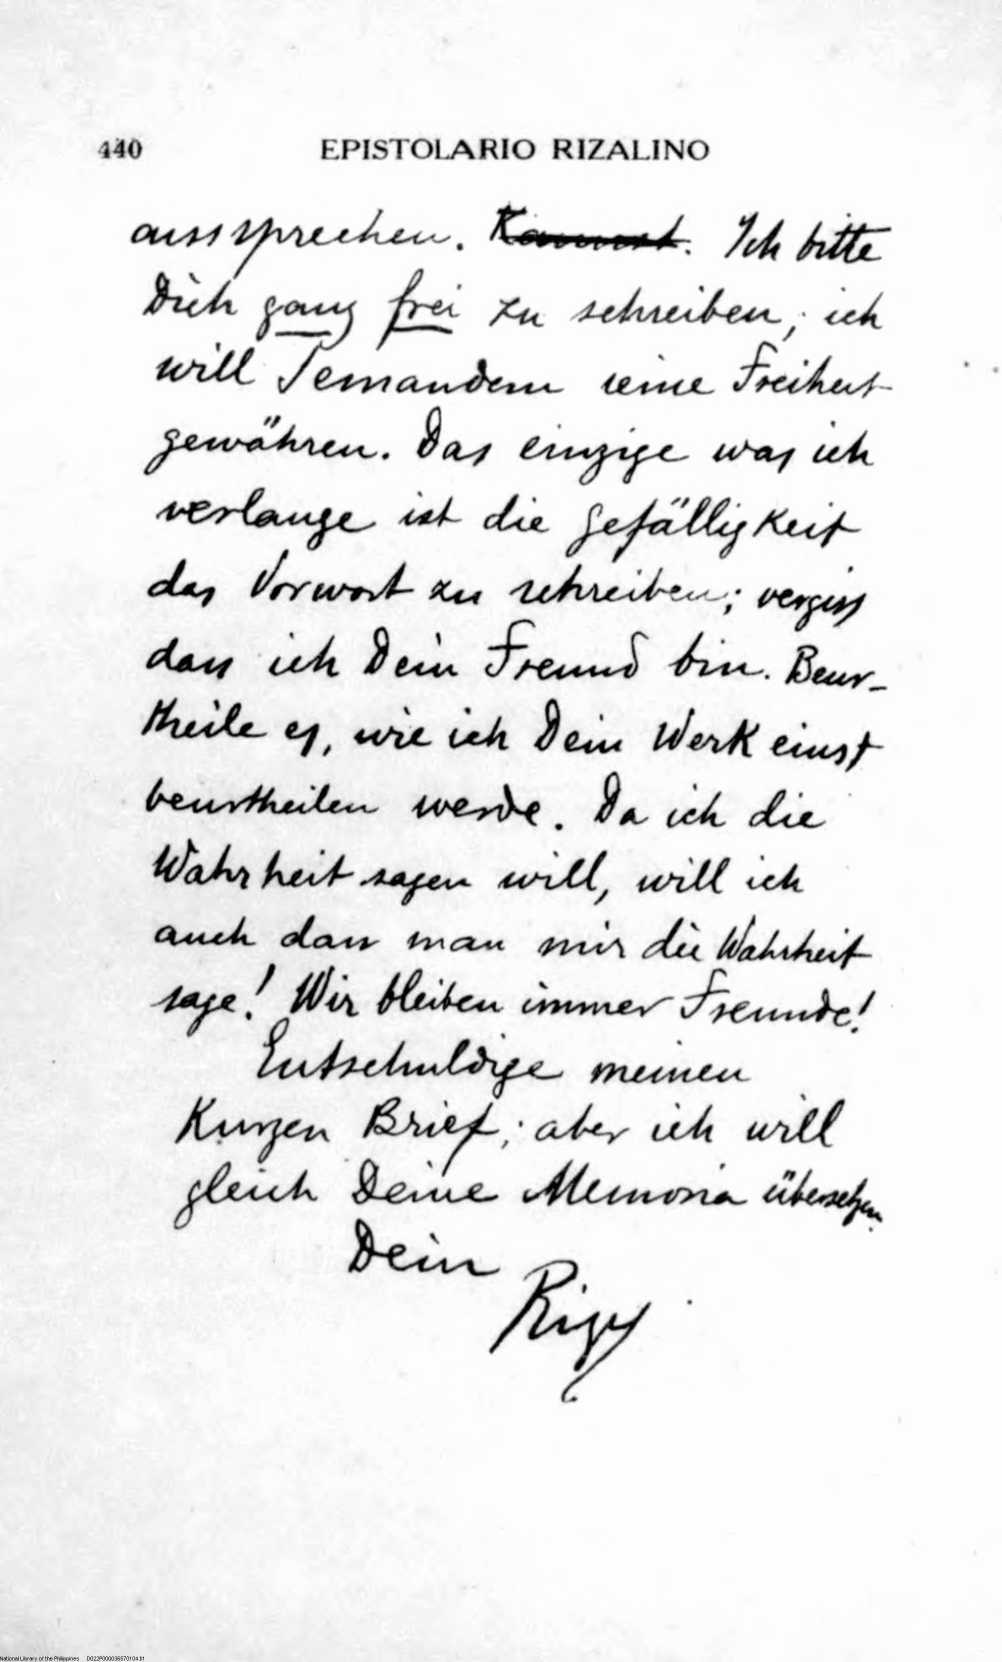 440 EPISTOLARIO RIZALINO
aussprechen. Kannst. Ich bitte
Dich ganz frei zu schreiben; ich
will Jemandem seine Freiheit
gewähren. Das einzige was ich
verlange ist die gefälligkeit
das Vorwort zu schreiben; vergiss
dass ich Dein Freund bin. Beur-
theile es, wie ich Dein Werk einst
beurtheilen werde. Da ich die
Wahrheit sagen will, will ich
auch dass man mir die Wahrheit
sage! Wir bleiben immer Freunde!
Entschuldige meinen
Kurzen Brief; aber ich will
gleich Deine Memoria übersetzen.
Dein
Rizal
National Library of the Philippines